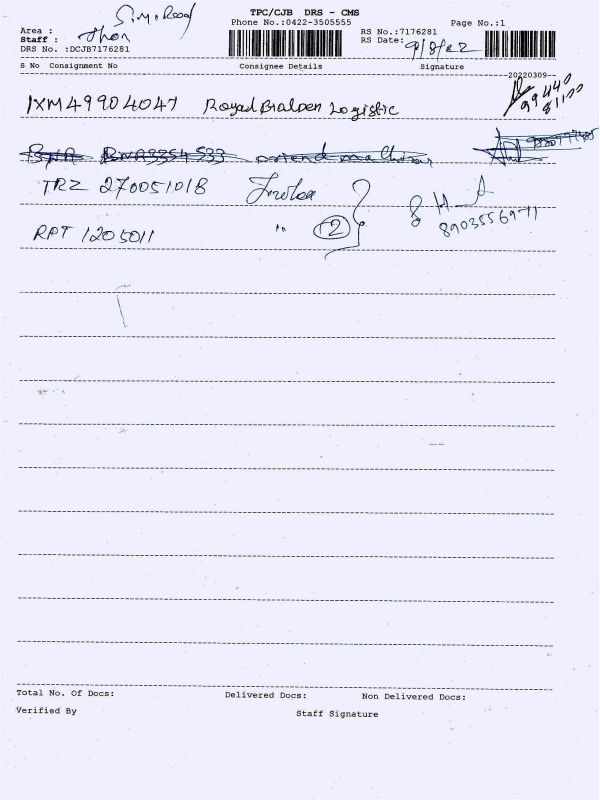 TPC/CJB DRS - CMS
Phone No.:0422-3505555
Page No.:1
Area : S.M. Road
Staff :
DRS No. :DCJB7176281
RS No.:7176281
RS Date: 9/3/22
S No Consignment No Consignee Details Signature
20220309
IXM49904047 Royal Logistic
99440
81100
TRZ 270051018
RPT 1205011 " 2
8903556971
Total No. Of Docs: Delivered Docs: Non Delivered Docs:
Verified By Staff Signature